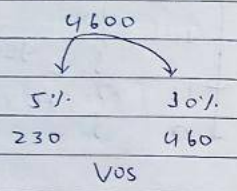 4600
5% 10%
230 460
VOS